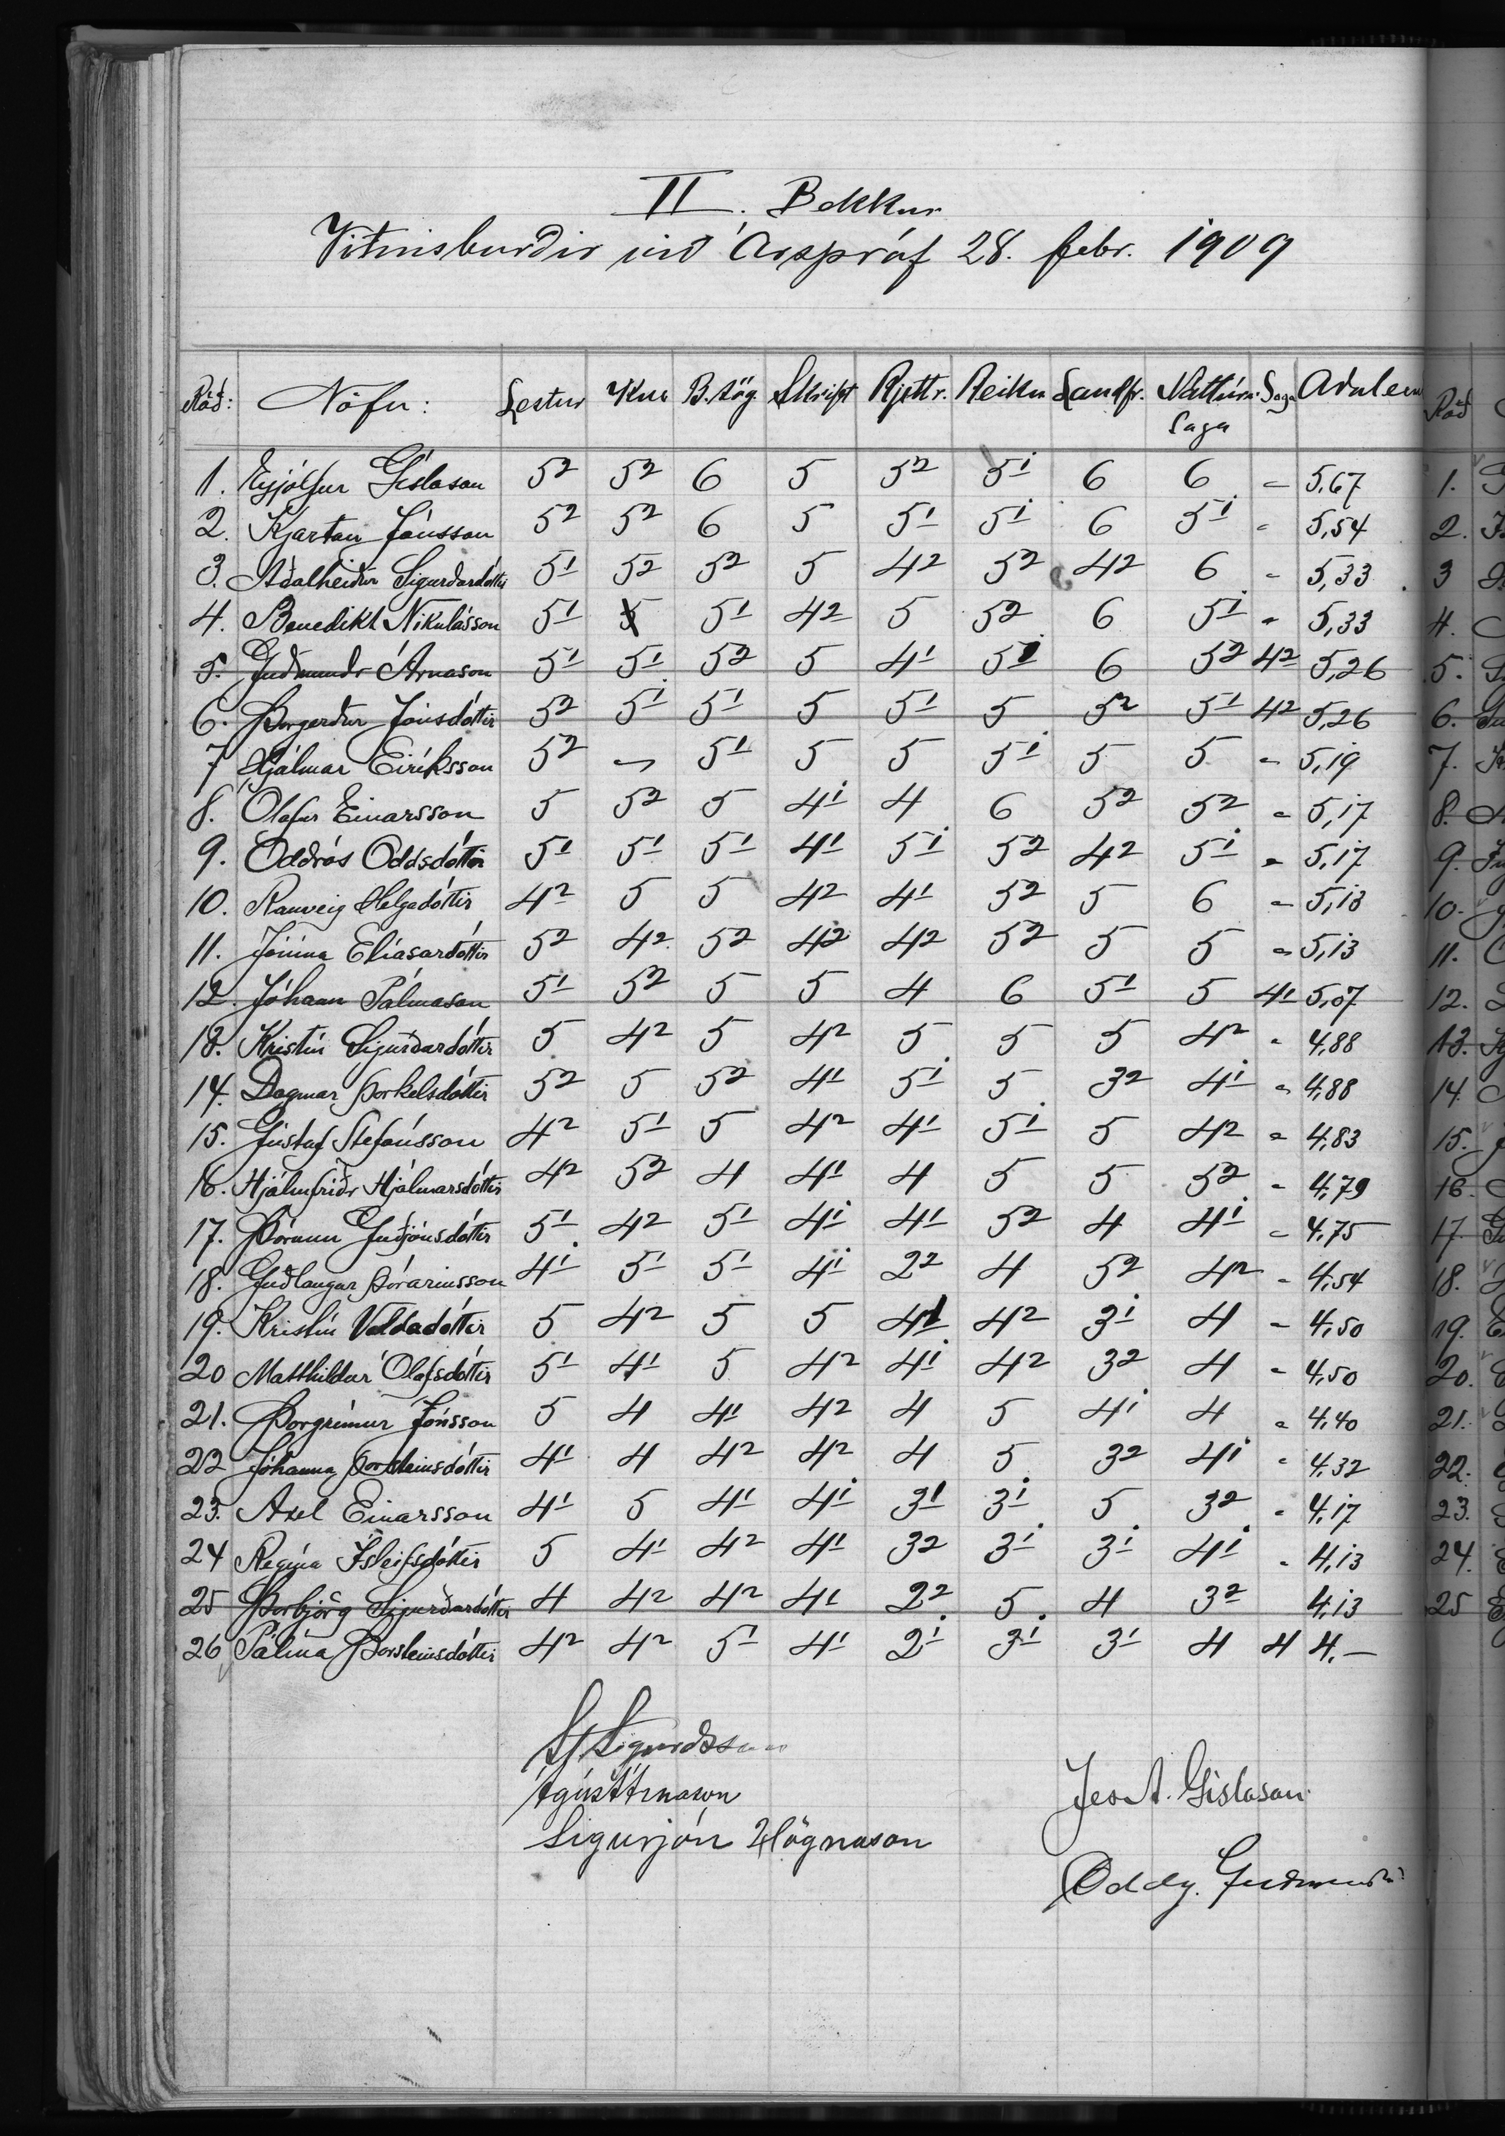 II. Bekkur
Vitnisburðir við Árspróf 28. febr. 1909
Röð: Nöfn: Lestur Kver B.sög. Skrift Rjettr. Reikn Landfr. Náttúru Saga Saga Aðaleink
1. Eyjólfur Gíslason 5² 5² 6 5 5² 5¹ 6 6 – 5,67
2. Kjartan Jónsson 5² 5² 6 5 5¹ 5¹ 6 5¹ - 5,54
3. Aðalheiður Sigurðardóttir 5¹ 5² 5² 5 4² 5² 4² 6 - 5,33
4. Benedikt Nikulásson 5¹ 5 5¹ 4² 5 5² 6 5¹ - 5,33
5. Guðmundr Árnason 5¹ 5¹ 5² 5 4¹ 5¹ 6 5² 4² 5,26
6. Þorgerður Jónsdóttir 5² 5¹ 5¹ 5 5¹ 5 5² 5¹ 4² 5,26
7 Hjálmar Eiríksson 5² – 5¹ 5 5 5¹ 5 5 - 5,19
8. Ólafur Einarsson 5 5² 5 4¹ 4 6 5² 5² - 5,17
9. Oddrós Oddsdóttir 5¹ 5¹ 5¹ 4¹ 5¹ 5² 4² 5¹ - 5,17
10. Ranveig Helgadóttir 4² 5 5 4² 4¹ 5² 5 6 - 5,13
11. Jónína Elíasardóttir 5² 4² 5² 4² 4² 5² 5 5 - 5,13
12. Jóhann Pálmason 5¹ 5² 5 5 4 6 5¹ 5 4¹ 5,07
13. Kristín Sigurðardóttir 5 4² 5 4² 5 5 5 4² - 4,88
14. Dagmar Þorkelsdóttir 5² 5 5² 4¹ 5¹ 5 3² 4¹ - 4,88
15. Gústaf Stefánsson 4² 5¹ 5 4² 4¹ 5¹ 5 4² - 4,83
16. Hjálmfríðr Hjálmarsdóttir 4² 5² 4 4¹ 4 5 5 5² - 4,79
17. Þórunn Guðjónsdóttir 5¹ 4² 5¹ 4¹ 4¹ 5² 4 4¹ - 4,75
18. Guðlaugur Þórarinsson 4¹ 5¹ 5¹ 4¹ 2² 4 5² 4² - 4,54
19. Kristín Valdadóttir 5 4² 5 5 4¹ 4² 3¹ 4 - 4,50
20 Matthildur Ólafsdóttir 5¹ 4¹ 5 4² 4¹ 4² 3² 4 - 4,50
21. Þorgrímur Jónsson 5 4 4¹ 4² 4 5 4¹ 4 - 4,40
22 Jóhanna Þorsteinsdóttir 4¹ 4 4² 4² 4 5 3² 4¹ - 4,32
23. Axel Einarsson 4¹ 5 4¹ 4¹ 3¹ 3¹ 5 3² - 4,17
24 Regína Ísleifsdóttir 5 4¹ 4² 4¹ 3² 3¹ 3¹ 4¹ - 4,13
25 Þorbjörg Sigurðardóttir 4 4² 4² 4¹ 2² 5 4 3² 4,13
26 Pálína Þorsteinsdóttir 4² 4² 5¹ 4¹ 2¹ 3¹ 3¹ 4 4 4,—
Sigurdsson
Ágúst Árnason
Jes A. Gíslason
Sigurjón Högnason
Oddg. Guðmunds
Röð
1.
2.
3
4.
5.
6.
7.
8.
9.
10.
11.
12.
13.
14
15.
16.
17
18.
19.
20.
21.
22.
23.
24.
25